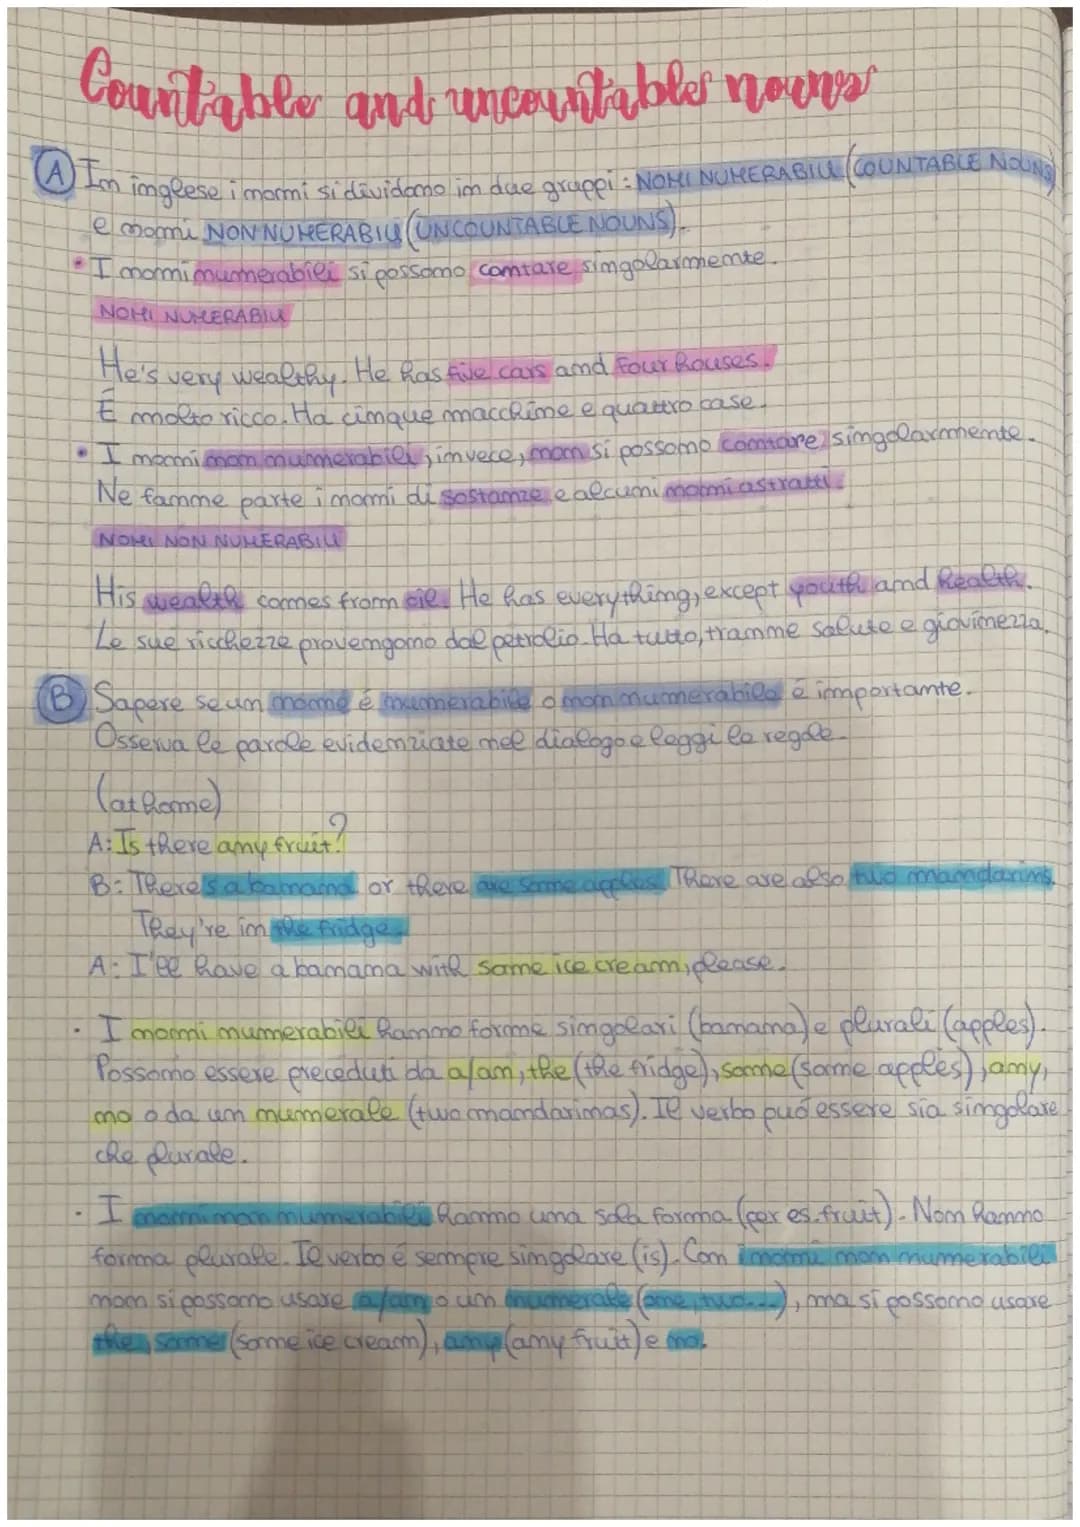 Countable and uncountable nouns
A In inglese i nomi si dividono in due gruppi: NOMI NUMERABILI (COUNTABLE NOUNS)
e nomi NON NUMERABILI (UNCOUNTABLE NOUNS).
• I nomi numerabili si possono contare singolarmente.
NOMI NUMERABILI
He's very wealthy. He has five cars and four houses.
É molto ricco. Ha cinque macchine e quattro case.
• I nomi non numerabili, invece, non si possono contare singolarmente.
Ne fanno parte i nomi di sostanze e alcuni nomi astratti.
NOMI NON NUMERABILI
His wealth comes from oil. He has everything, except youth and health.
Le sue ricchezze provengono dal petrolio. Ha tutto, tranne salute e giovinezza.
B Sapere se un nome é numerabile o non numerabile é importante.
Osserva le parole evidenziate nel dialogo e leggi le regole.
(at home)
A: Is there any fruit?
B: There's a banana or there are some apples. There are also two mandarins.
They're in the fridge.
A: I'll have a banana with some ice cream, please.
· I nomi numerabili hanno forme singolari (banana) e plurali (apples).
Possono essere preceduti da a/an, the (the fridge), some (some apples), any,
no o da un numerale (two mandarinas). Il verbo può essere sia singolare
che plurale.
· I nomi non numerabili hanno una sola forma (per es. fruit). Non hanno
forma plurale. Il verbo é sempre singolare (is). Con i nomi non numerabili
non si possono usare a/an o un numerale (one, two...), ma si possono usare
the, some (some ice cream), any (any fruit) e no.